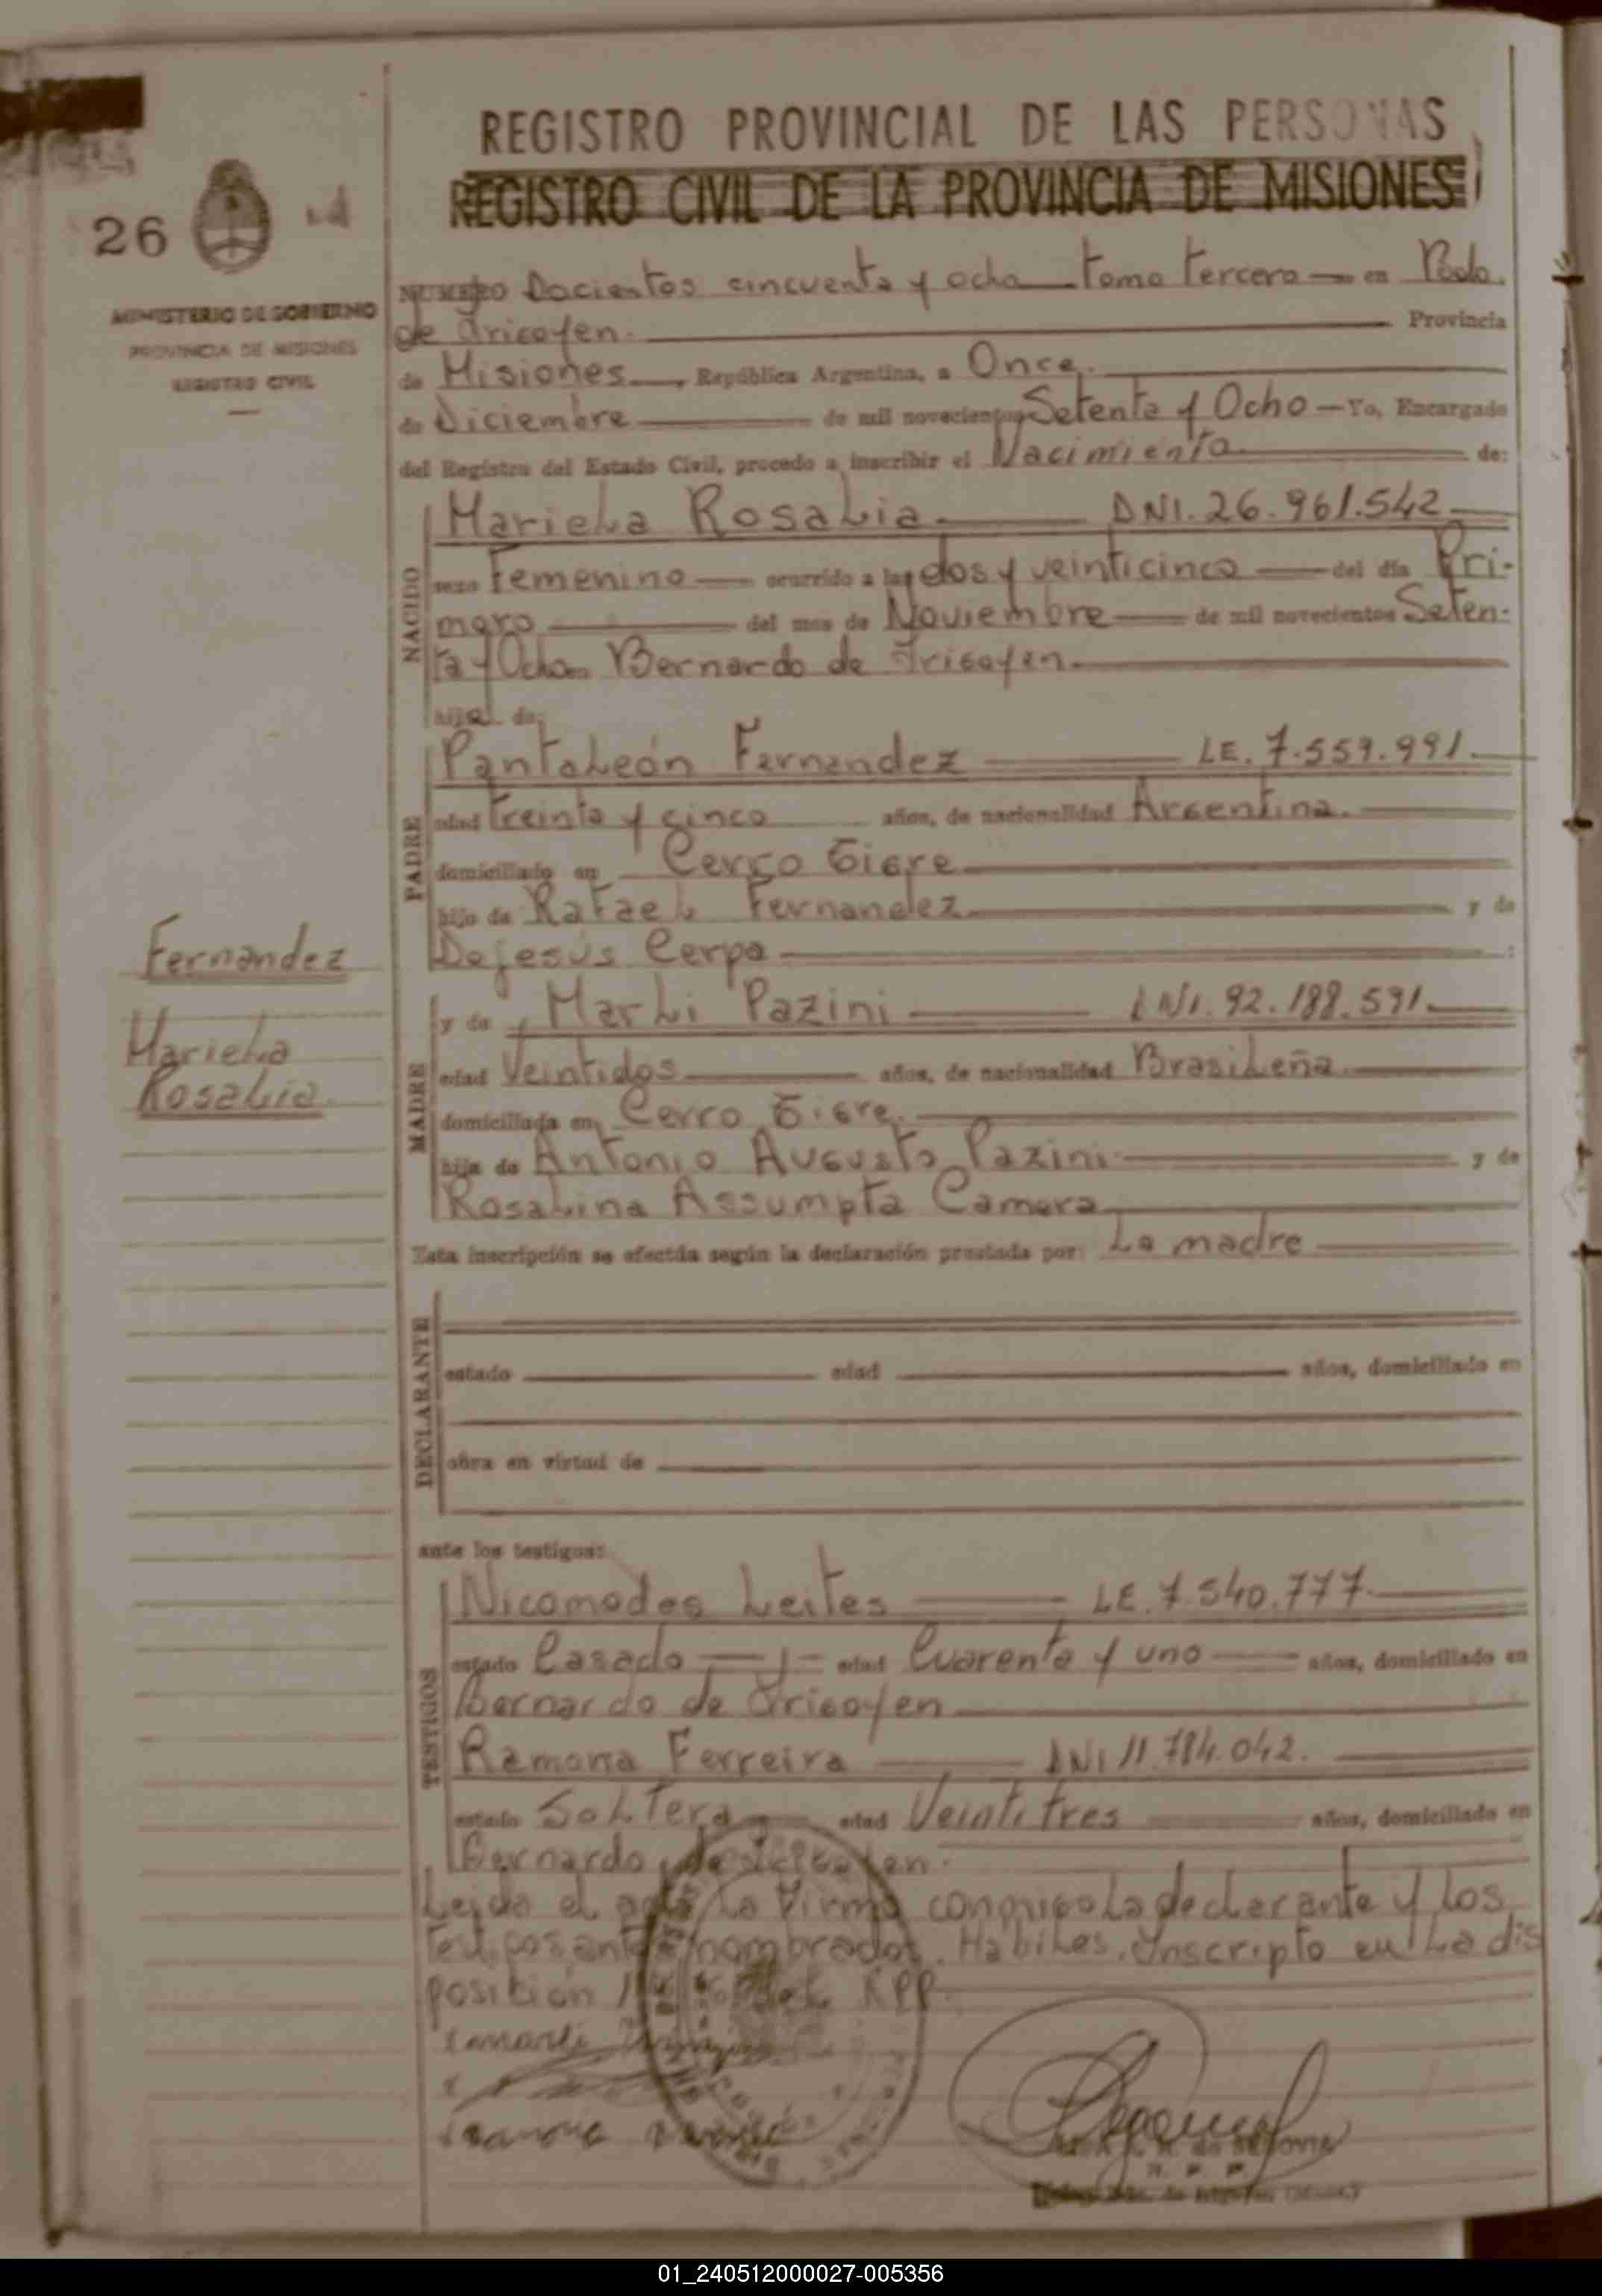 REGISTRO PROVINCIAL DE LAS PERSONAS
REGISTRO CIVIL DE LA PROVINCIA DE MISIONES
26
MINISTERIO DE GOBIERNO
PROVINCIA DE MISIONES
REGISTRO CIVIL
NUMERO Docientos cincuenta y ocho tomo tercero en Bdo.
de Irigoyen. Provincia
de Misiones, República Argentina, a Once
de Diciembre de mil novecientos Setenta y Ocho Yo, Encargado
del Registro del Estado Civil, procedo a inscribir el Nacimiento de:
NACIDO
Mariela Rosalia DNI. 26.961.542
sexo Femenino ocurrido a las dos y veinticinco del día Pri-
mero del mes de Noviembre de mil novecientos Seten-
ta y Ocho en Bernardo de Irigoyen.
hija de:
PADRE
Pantaleón Fernandez LE. 7.559.991
edad treinta y cinco años, de nacionalidad Argentina.
domiciliado en Cerro Tigre
hijo de Rafael Fernandez y de
Dejesús Cerpa :
Fernandez
Mariela
Rosalia
MADRE
y de Marli Pazini DNI. 92.188.591
edad Veintidos años, de nacionalidad Brasileña
domiciliada en Cerro Tigre.
hija de Antonio Augusto Pazini y de
Rosalina Assumpta Camera
Esta inscripción se efectúa según la declaración prestada por: La madre
DECLARANTE
estado edad años, domiciliado en
obra en virtud de
ante los testigos:
TESTIGOS
Nicomedes Leites LE. 7.540.777
estado Casado edad Cuarenta y uno años, domiciliado en
Bernardo de Irigoyen
Ramona Ferreira DNI 11.784.042.
estado Soltera edad Veintitres años, domiciliado en
Bernardo de Irigoyen.
Leida el acta la firma conmigo la declarante y los
testigos antes nombrados. Habiles. Inscripto en la dis
posición RPP.
01_240512000027-005356